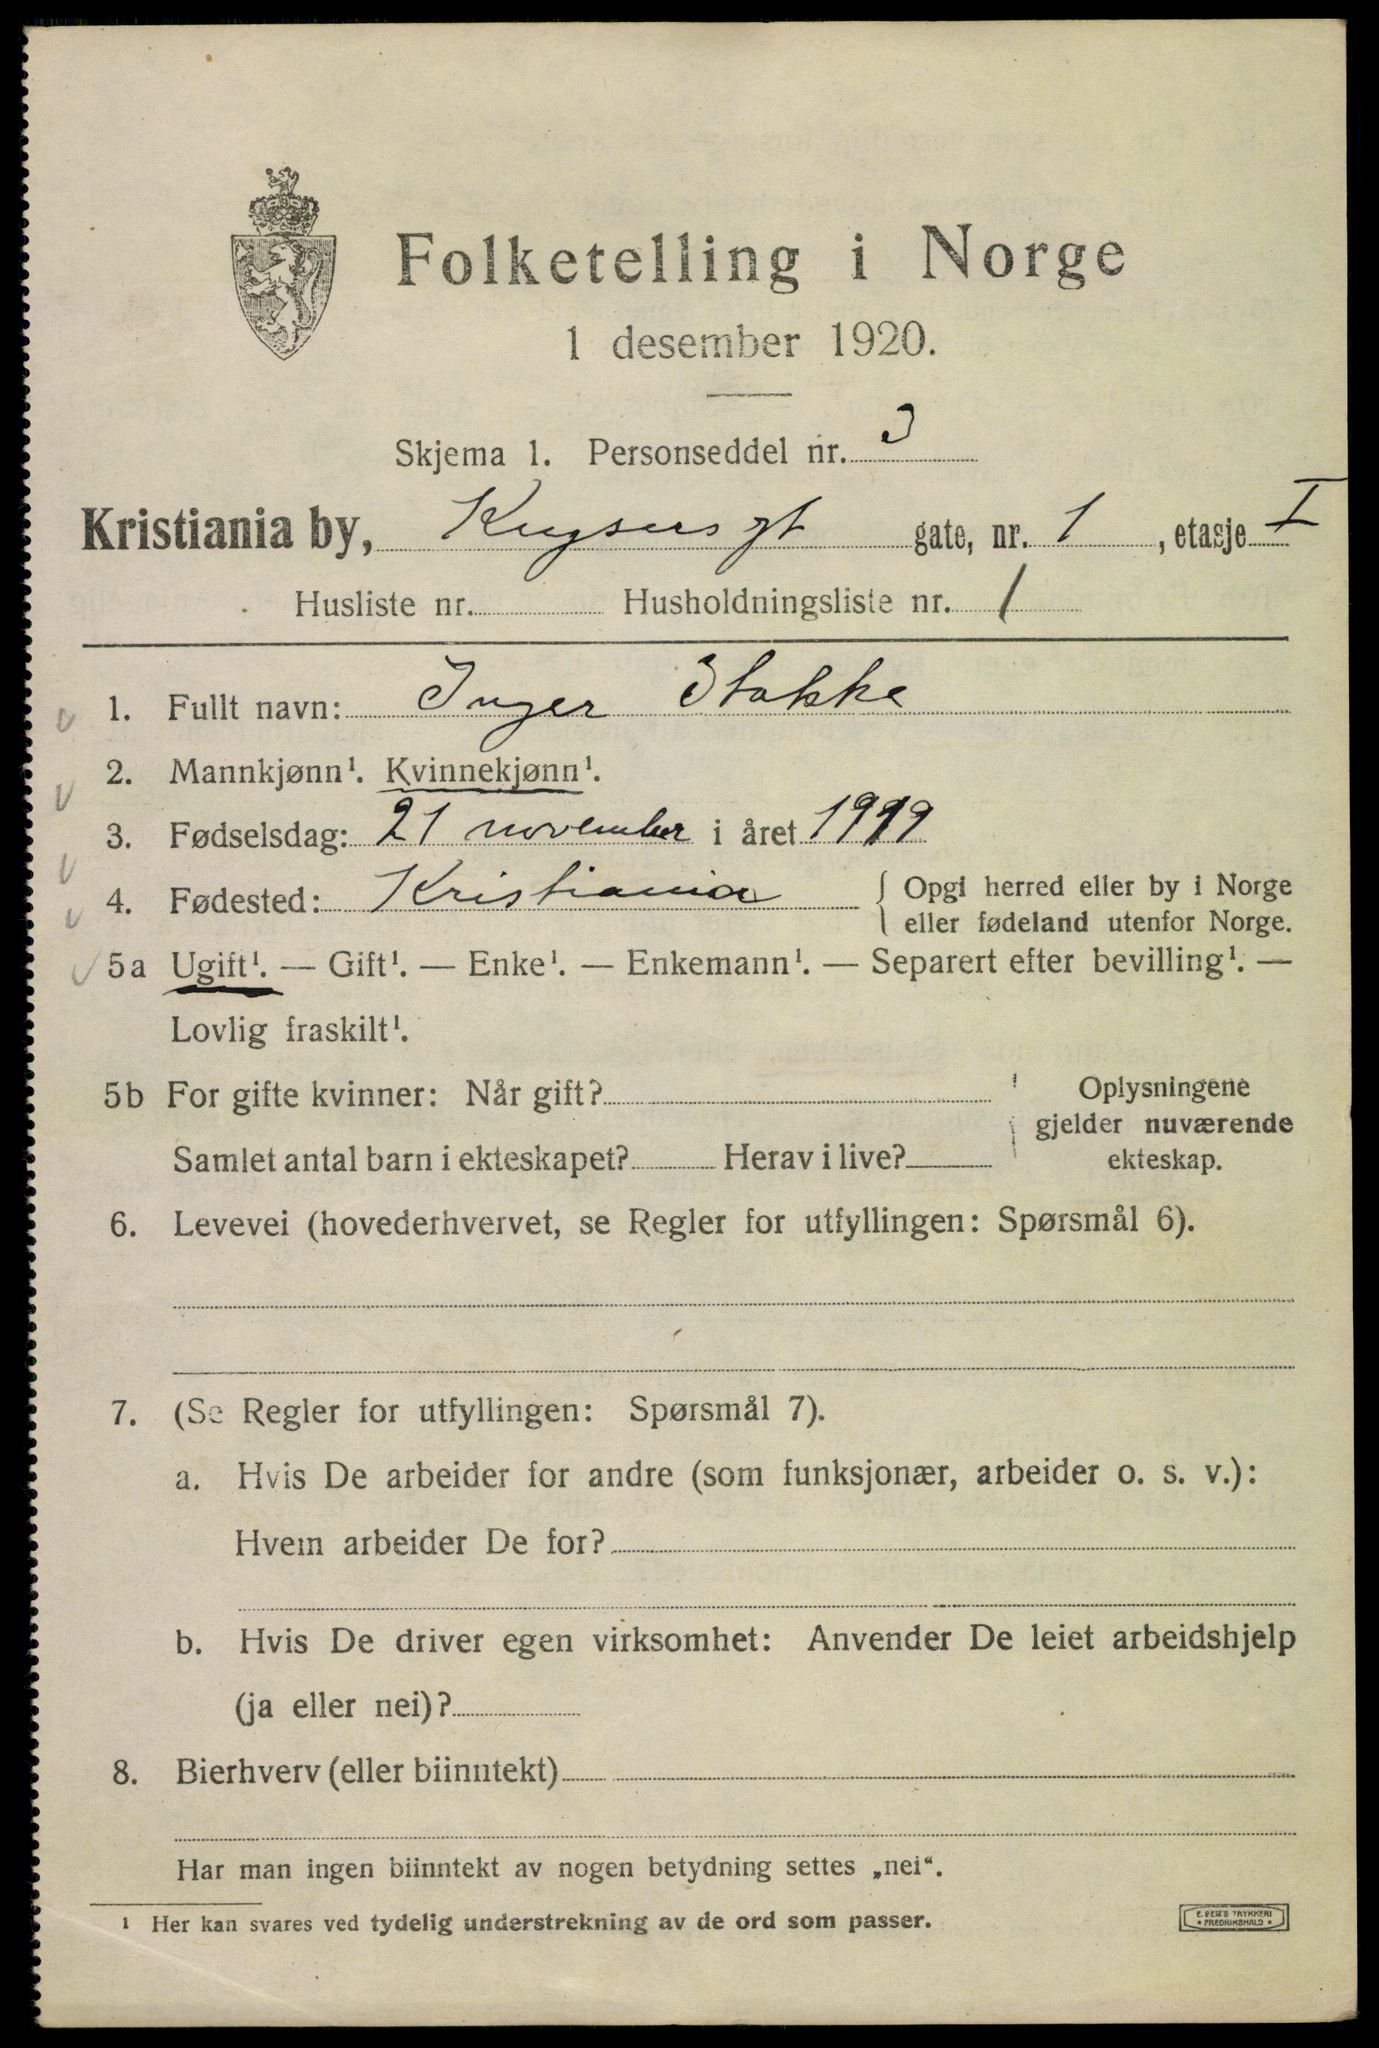 Folketelling i Norge
1 desember 1920.
Skjema 1. Personseddel nr. 3
Kristiania by, Keysers gt gate, nr. 1, etasje I
Husliste nr. Husholdningsliste nr. 1
1. Fullt navn: Inger Stokke
2. Mannkjønn¹. Kvinnekjønn¹.
3. Fødselsdag: 21 november i året 1919
4. Fødested: Kristiania { Opgi herred eller by i Norge
eller fødeland utenfor Norge.
5a Ugift¹. — Gift¹. — Enke¹. — Enkemann¹. — Separert efter bevilling¹. —
Lovlig fraskilt¹.
5b For gifte kvinner: Når gift? Oplysningene
gjelder nuværende
Samlet antal barn i ekteskapet? Herav i live? ekteskap.
6. Levevei (hovederhvervet, se Regler for utfyllingen: Spørsmål 6).
7. (Se Regler for utfyllingen: Spørsmål 7).
a. Hvis De arbeider for andre (som funksjonær, arbeider o. s. v.):
Hvem arbeider De for?
b. Hvis De driver egen virksomhet: Anvender De leiet arbeidshjelp
(ja eller nei)?
8. Bierhverv (eller biinntekt)
Har man ingen biinntekt av nogen betydning settes „nei“.
¹ Her kan svares ved tydelig understrekning av de ord som passer.
E. SEM'S TRYKKERI
* FREDRIKSHALD *